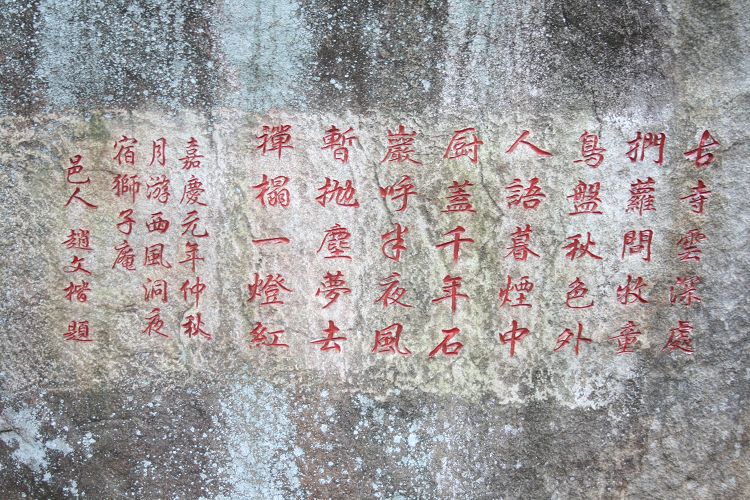 古寺雲深處
捫蘿問牧童
鳥盤秋色外
人語暮煙中
厨蓋千年石
巖呼半夜風
暫抛塵夢去
禪榻一燈紅
嘉慶元年仲秋
月游西風洞夜
宿獅子庵
邑人趙文楷題